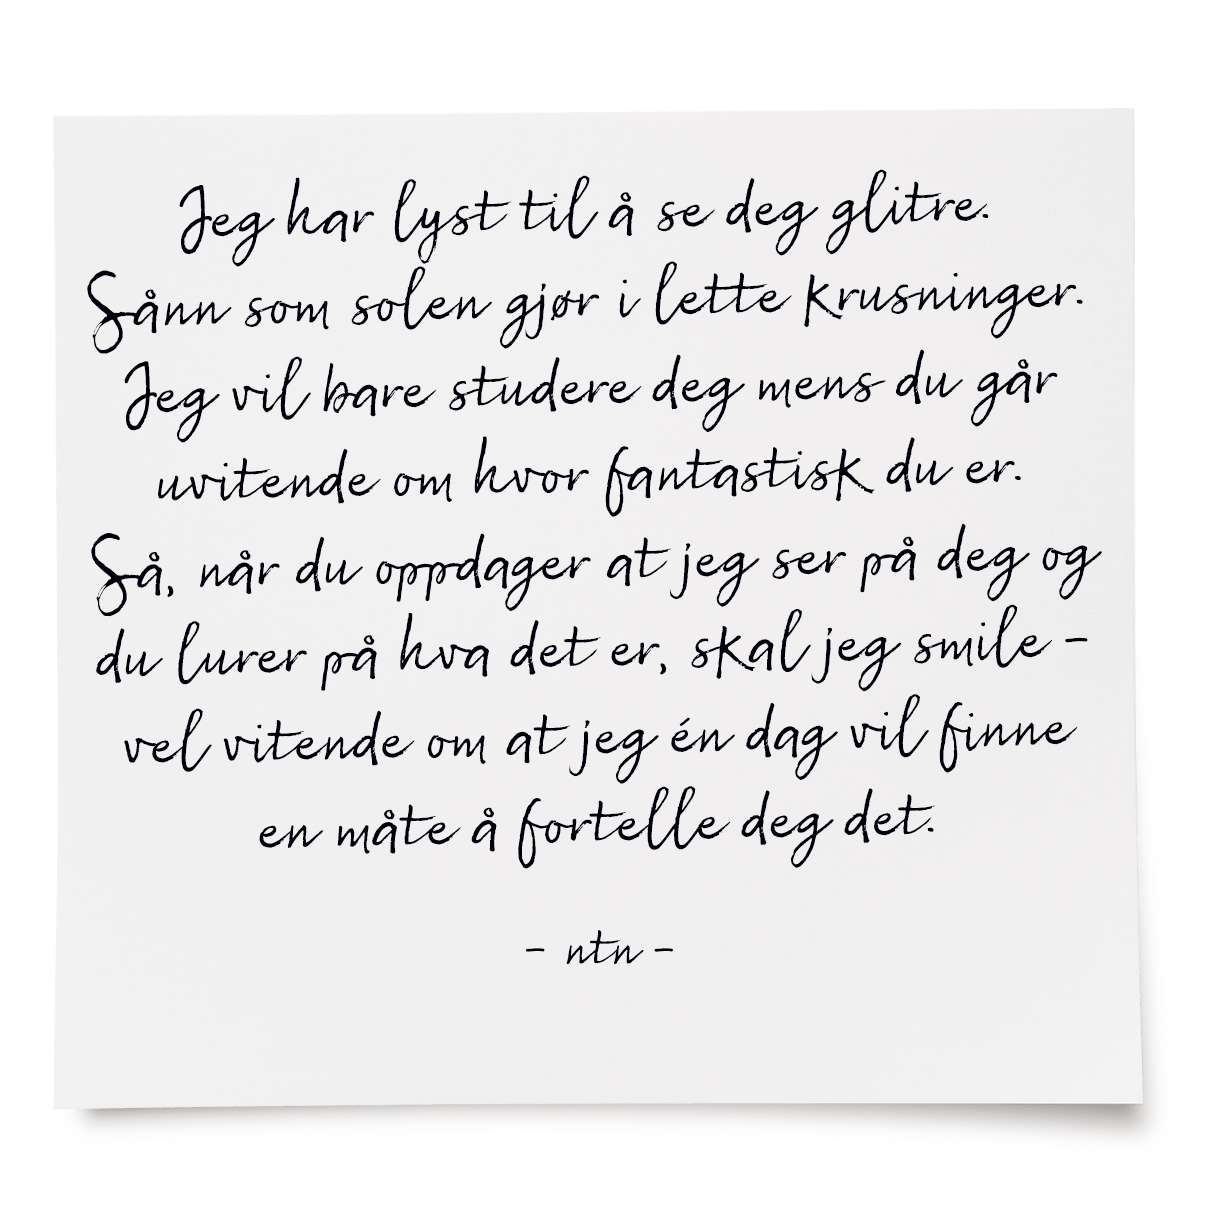 Jeg har lyst til å se deg glitre.
Sånn som solen gjør i lette krusninger.
Jeg vil bare studere deg mens du går
uvitende om hvor fantastisk du er.
Så, når du oppdager at jeg ser på deg og
du lurer på hva det er, skal jeg smile -
vel vitende om at jeg én dag vil finne
en måte å fortelle deg det.
- ntn -